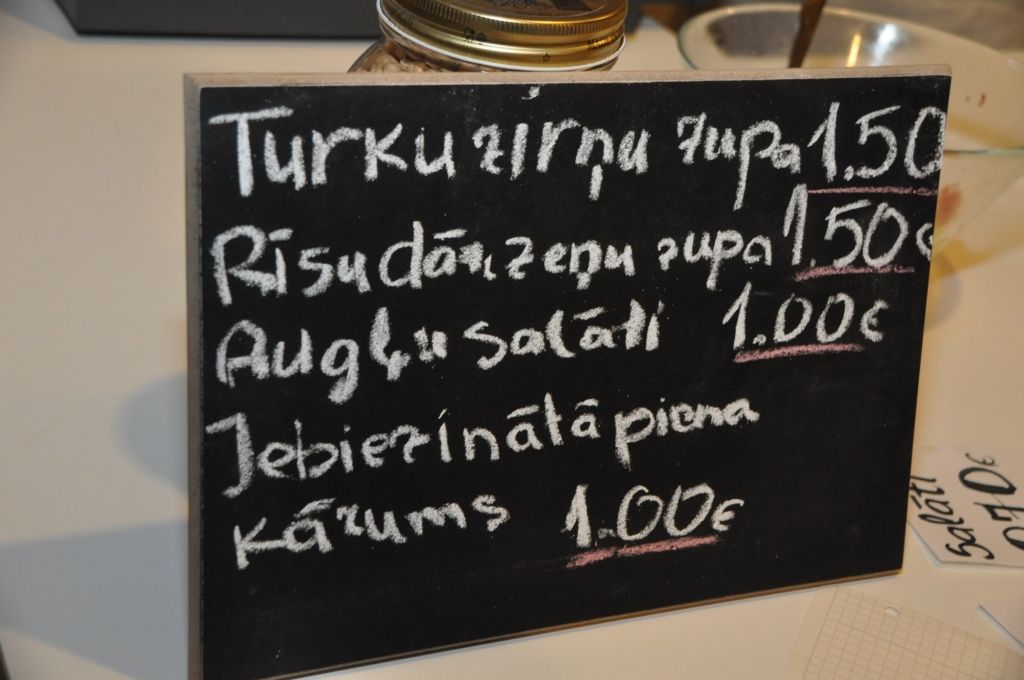 Turku zirņu zupa 1.50
Rīsu dārzeņu zupa 1.50€
Augļu salāti 1.00€
Iebiezinātā piena
kārums 1.00€
Salāti
0.70€